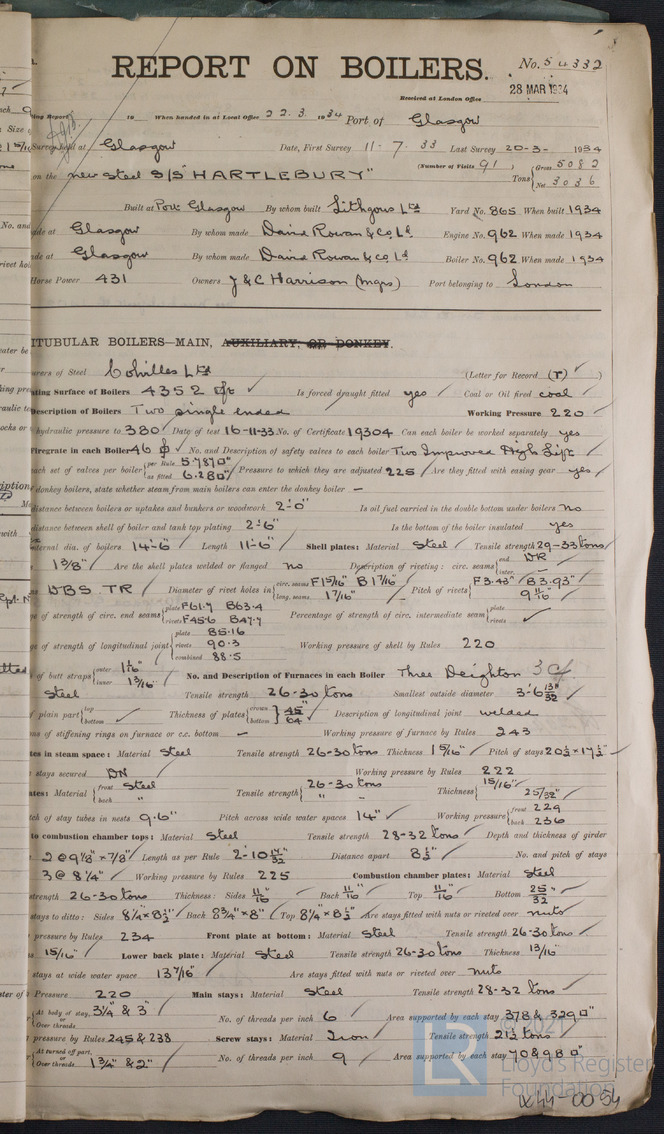 REPORT ON BOILERS.
No. 54332
Received at London Office
28 MAR 1934
ing Report 19 When handed in at Local Office 22.3.1934 Port of Glasgow
Survey held at Glasgow Date, First Survey 11-7.33 Last Survey 20-3- 1934
on the new Steel S/S "HARTLEBURY" (Number of Visits 91) Tons {Gross 5082 Net 3036
Built at Port Glasgow By whom built Lithgows Ltd Yard No. 865 When built 1934
ade at Glasgow By whom made David Rowan & Co. Ld Engine No. 962 When made 1934
ade at Glasgow By whom made David Rowan & Co. Ld Boiler No. 962 When made 1934
Horse Power 431 Owners J & C Harrison (Mgrs) Port belonging to London
ITUBULAR BOILERS—MAIN, AUXILIARY, OR DONKEY.
urers of Steel Colvilles Ltd (Letter for Record (r) )
ating Surface of Boilers 4352 Is forced draught fitted yes Coal or Oil fired coal
Description of Boilers Two single ended Working Pressure 220
hydraulic pressure to 380 Date of test 16-11-33 No. of Certificate 19304 Can each boiler be worked separately yes
Firegrate in each Boiler 46 No. and Description of safety valves to each boiler Two Improved High Lift
each set of valves per boiler {per Rule 5.787□" as fitted 6.280□" Pressure to which they are adjusted 225 Are they fitted with easing gear yes
donkey boilers, state whether steam from main boilers can enter the donkey boiler —
distance between boilers or uptakes and bunkers or woodwork 2'-0" Is oil fuel carried in the double bottom under boilers no
distance between shell of boiler and tank top plating 2'-6" Is the bottom of the boiler insulated yes
ternal dia. of boilers 14'-6" Length 11'-6" Shell plates: Material Steel Tensile strength 29-33 tons
1 3/8" Are the shell plates welded or flanged no Description of riveting: circ. seams {end DR inter. —
DBS. TR Diameter of rivet holes in {circ. seams F 15/16" B 1 7/16" long. seams 17/16" Pitch of rivets {F 3.43" B 3.93" 9 11/16"
ge of strength of circ. end seams {plate F61.7 B63.4 rivets F45.6 B47.7 Percentage of strength of circ. intermediate seam {plate rivets
ge of strength of longitudinal joint {plate 85.16 rivets 90.3 combined 88.5 Working pressure of shell by Rules 220
of butt straps {outer 1 1/16" inner 1 3/16" No. and Description of Furnaces in each Boiler Three Deighton 3 Cf
Steel Tensile strength 26-30 tons Smallest outside diameter 3'-6 13/32"
of plain part {top bottom Thickness of plates {crown bottom} 45/64" Description of longitudinal joint welded
ons of stiffening rings on furnace or c.c. bottom — Working pressure of furnace by Rules 243
tes in steam space: Material Steel Tensile strength 26-30 tons Thickness 15/16" Pitch of stays 20 1/2 x 17 1/2"
stays secured DN Working pressure by Rules 222
ates: Material {front Steel back " Tensile strength {26-30 tons " " Thickness {15/16" 25/32"
tch of stay tubes in nests 9.6" Pitch across wide water spaces 14" Working pressure {front 229 back 236
to combustion chamber tops: Material Steel Tensile strength 28-32 tons Depth and thickness of girder
2 @ 9 1/8" x 7/8" Length as per Rule 2'-10 17/32 Distance apart 8 1/2" No. and pitch of stays
3 @ 8 1/4" Working pressure by Rules 225 Combustion chamber plates: Material Steel
strength 26-30 tons Thickness: Sides 11/16" Back 11/16" Top 11/16" Bottom 25/32"
stays to ditto: Sides 8 1/4" x 8 1/2" Back 8 3/4" x 8" Top 8 1/4" x 8 1/2" Are stays fitted with nuts or riveted over nuts
pressure by Rules 234 Front plate at bottom: Material Steel Tensile strength 26-30 tons
15/16" Lower back plate: Material Steel Tensile strength 26-30 tons Thickness 13/16"
stays at wide water space 13 7/16" Are stays fitted with nuts or riveted over nuts
Pressure 220 Main stays: Material Steel Tensile strength 28-32 tons
{At body of stay, or Over threads 3 1/4" & 3" No. of threads per inch 6 Area supported by each stay 378 & 329□"
pressure by Rules 245 & 238 Screw stays: Material Iron Tensile strength 21 1/2 tons
{At turned off part, or Over threads 1 3/4" & 2" No. of threads per inch 9 Area supported by each stay 70 & 98□"
LR
© 2021
Lloyd's Register
Foundation
W44-0054